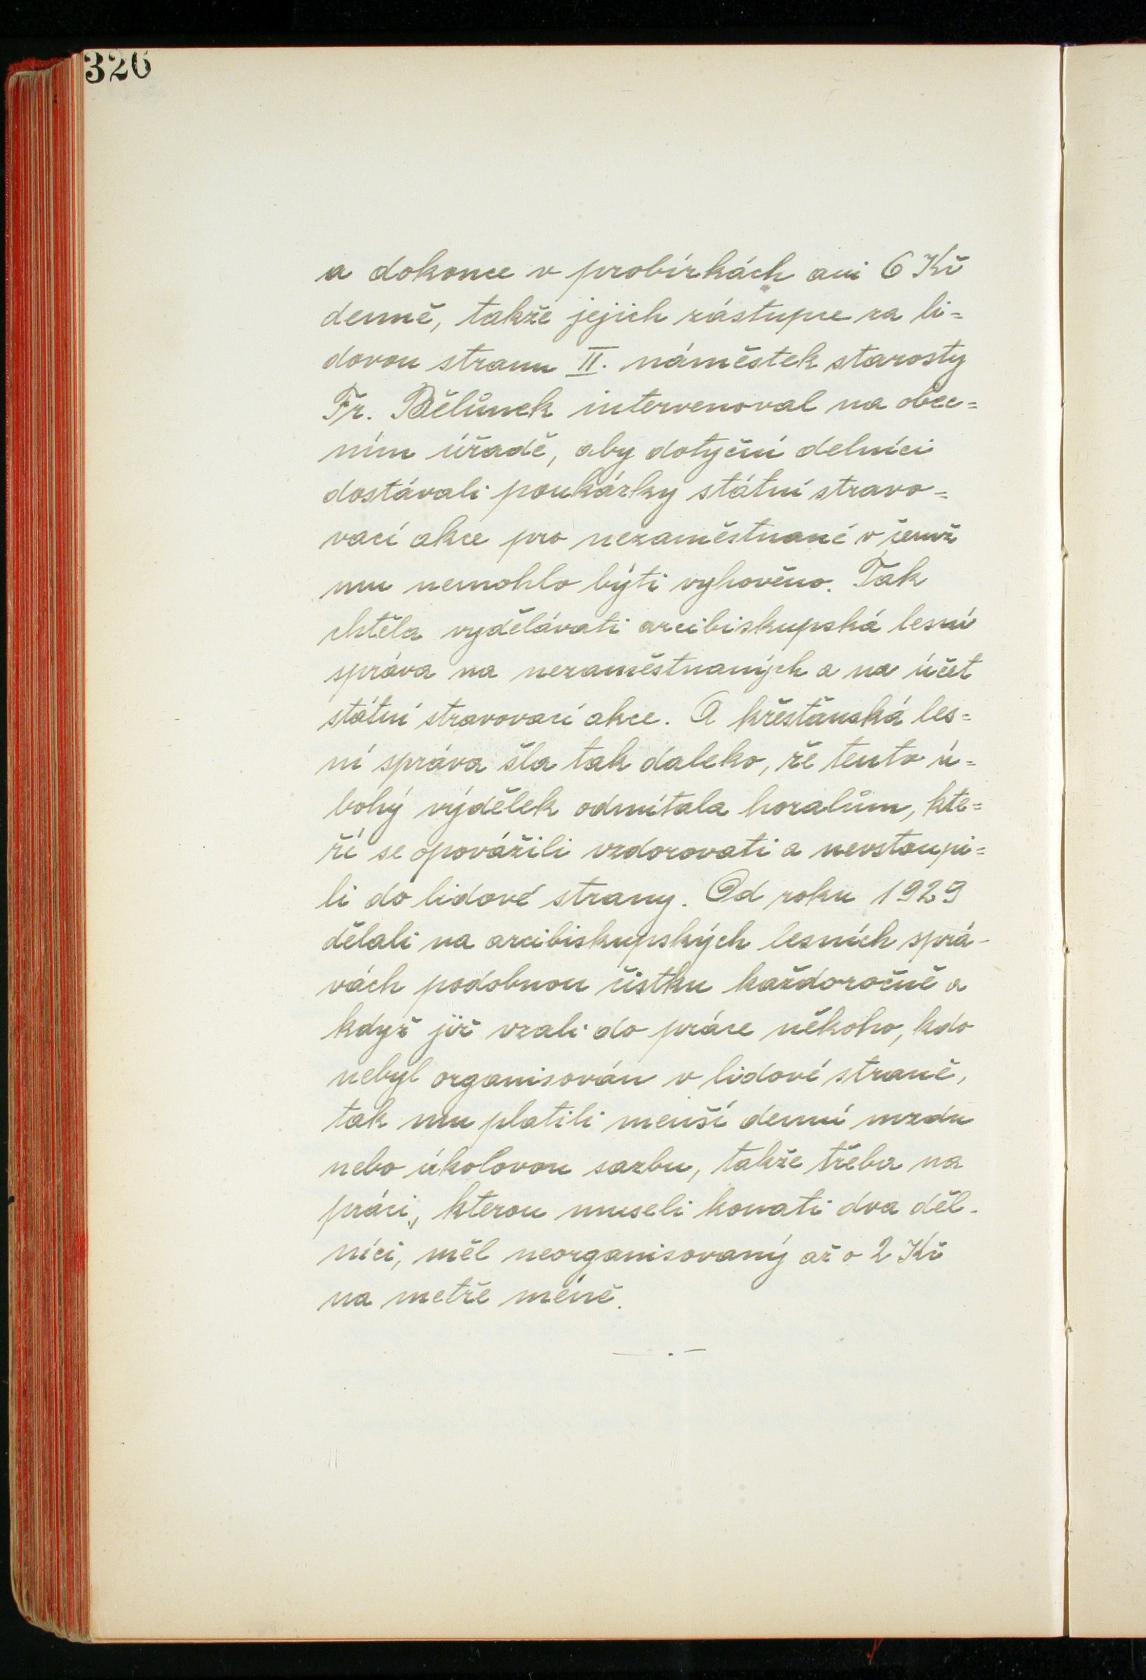 326
a dokonce v probírkách ani 6 Kč
denně, takže jejich zástupce za li=
dovou stranu II. náměstek starosty
Fr. Bělůnek intervenoval na obec=
ním úřadě, aby dotyční delníci
dostávali poukázky státní stravo=
vací akce pro nezaměstnané v čemž
mu nemohlo býti vyhověno. Tak
chtěla vydělávati arcibiskupská lesní
správa na nezaměstnaných a na účet
státní stravovací akce. A křesťanská les=
ní správa šla tak daleko, že tento ú=
bohý výdělek odmítala horalům, kte=
ří se opovážili vzdorovati a nevstoupi=
li do lidové strany. Od roku 1929
dělali na arcibiskupských lesních sprá-
vách podobnou čistku každoročně a
když již vzali do práce někoho, kdo
nebyl organisován v lidové straně,
tak mu platili menší denní mzdu
nebo úkolovou sazbu, takže třeba na
práci, kterou museli konati dva děl-
níci, měl neorganisovaný až o 2 Kč
na metře méně.